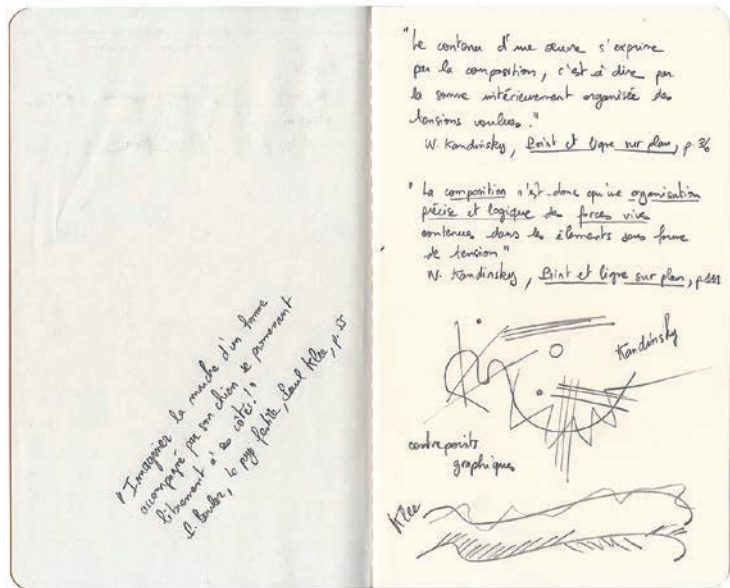 "Imaginez la marche d'un homme
accompagné par son chien se promenant
librement à ses côtés!"
P. Boulez, le pays fertile, Paul Klee, p.55
"Le contenu d'une œuvre s'exprime
par la composition, c'est à dire par
la somme intérieurement organisée des
tensions voulues."
W. Kandinsky, Point et ligne sur plan, p 36
"La composition n'est donc qu'une organisation
précise et logique des forces vives
contenues dans les éléments sous forme
de tension"
W. Kandinsky, Point et ligne sur plan, p.111
Kandinsky
contrepoints
graphiques
Klee